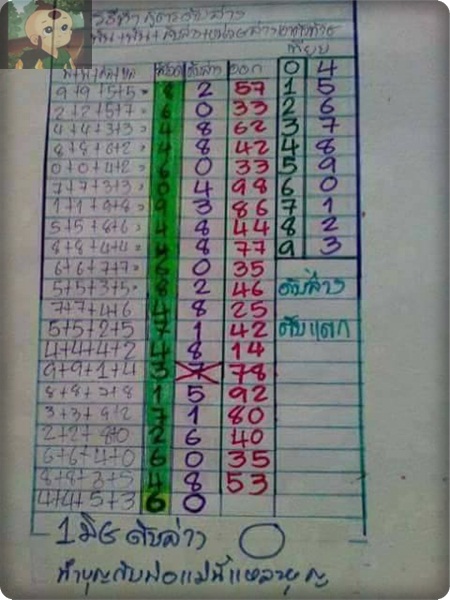 9+9+5+5= 8 2 57 0 4
2+2+5+7= 6 0 33 1 5
4+4+3+3= 4 8 62 2 6
8+8+6+2= 4 8 42 3 7
0+0+4+2= 6 0 33 4 8
7+7+3+3= 0 4 98 5 9
1+1+9+8= 9 3 86 6 0
5+5+8+6= 4 8 44 7 1
8+8+4+4= 4 8 77 8 2
6+6+7+7= 6 0 35 9 3
5+5+3+5= 8 2 46 ดับล่าง
7+7+4+6 4 8 25
5+5+2+5 7 1 42 ดับแตก
4+4+4+2 4 8 14
9+9+1+4 3 7 78
1 5 92
3+3+9+2 7 1 80
2+2+8+0 2 6 40
6+6+4+0 6 0 35
8+8+3+5 4 8 53
4+4+5+3 6 0
ดับล่าง